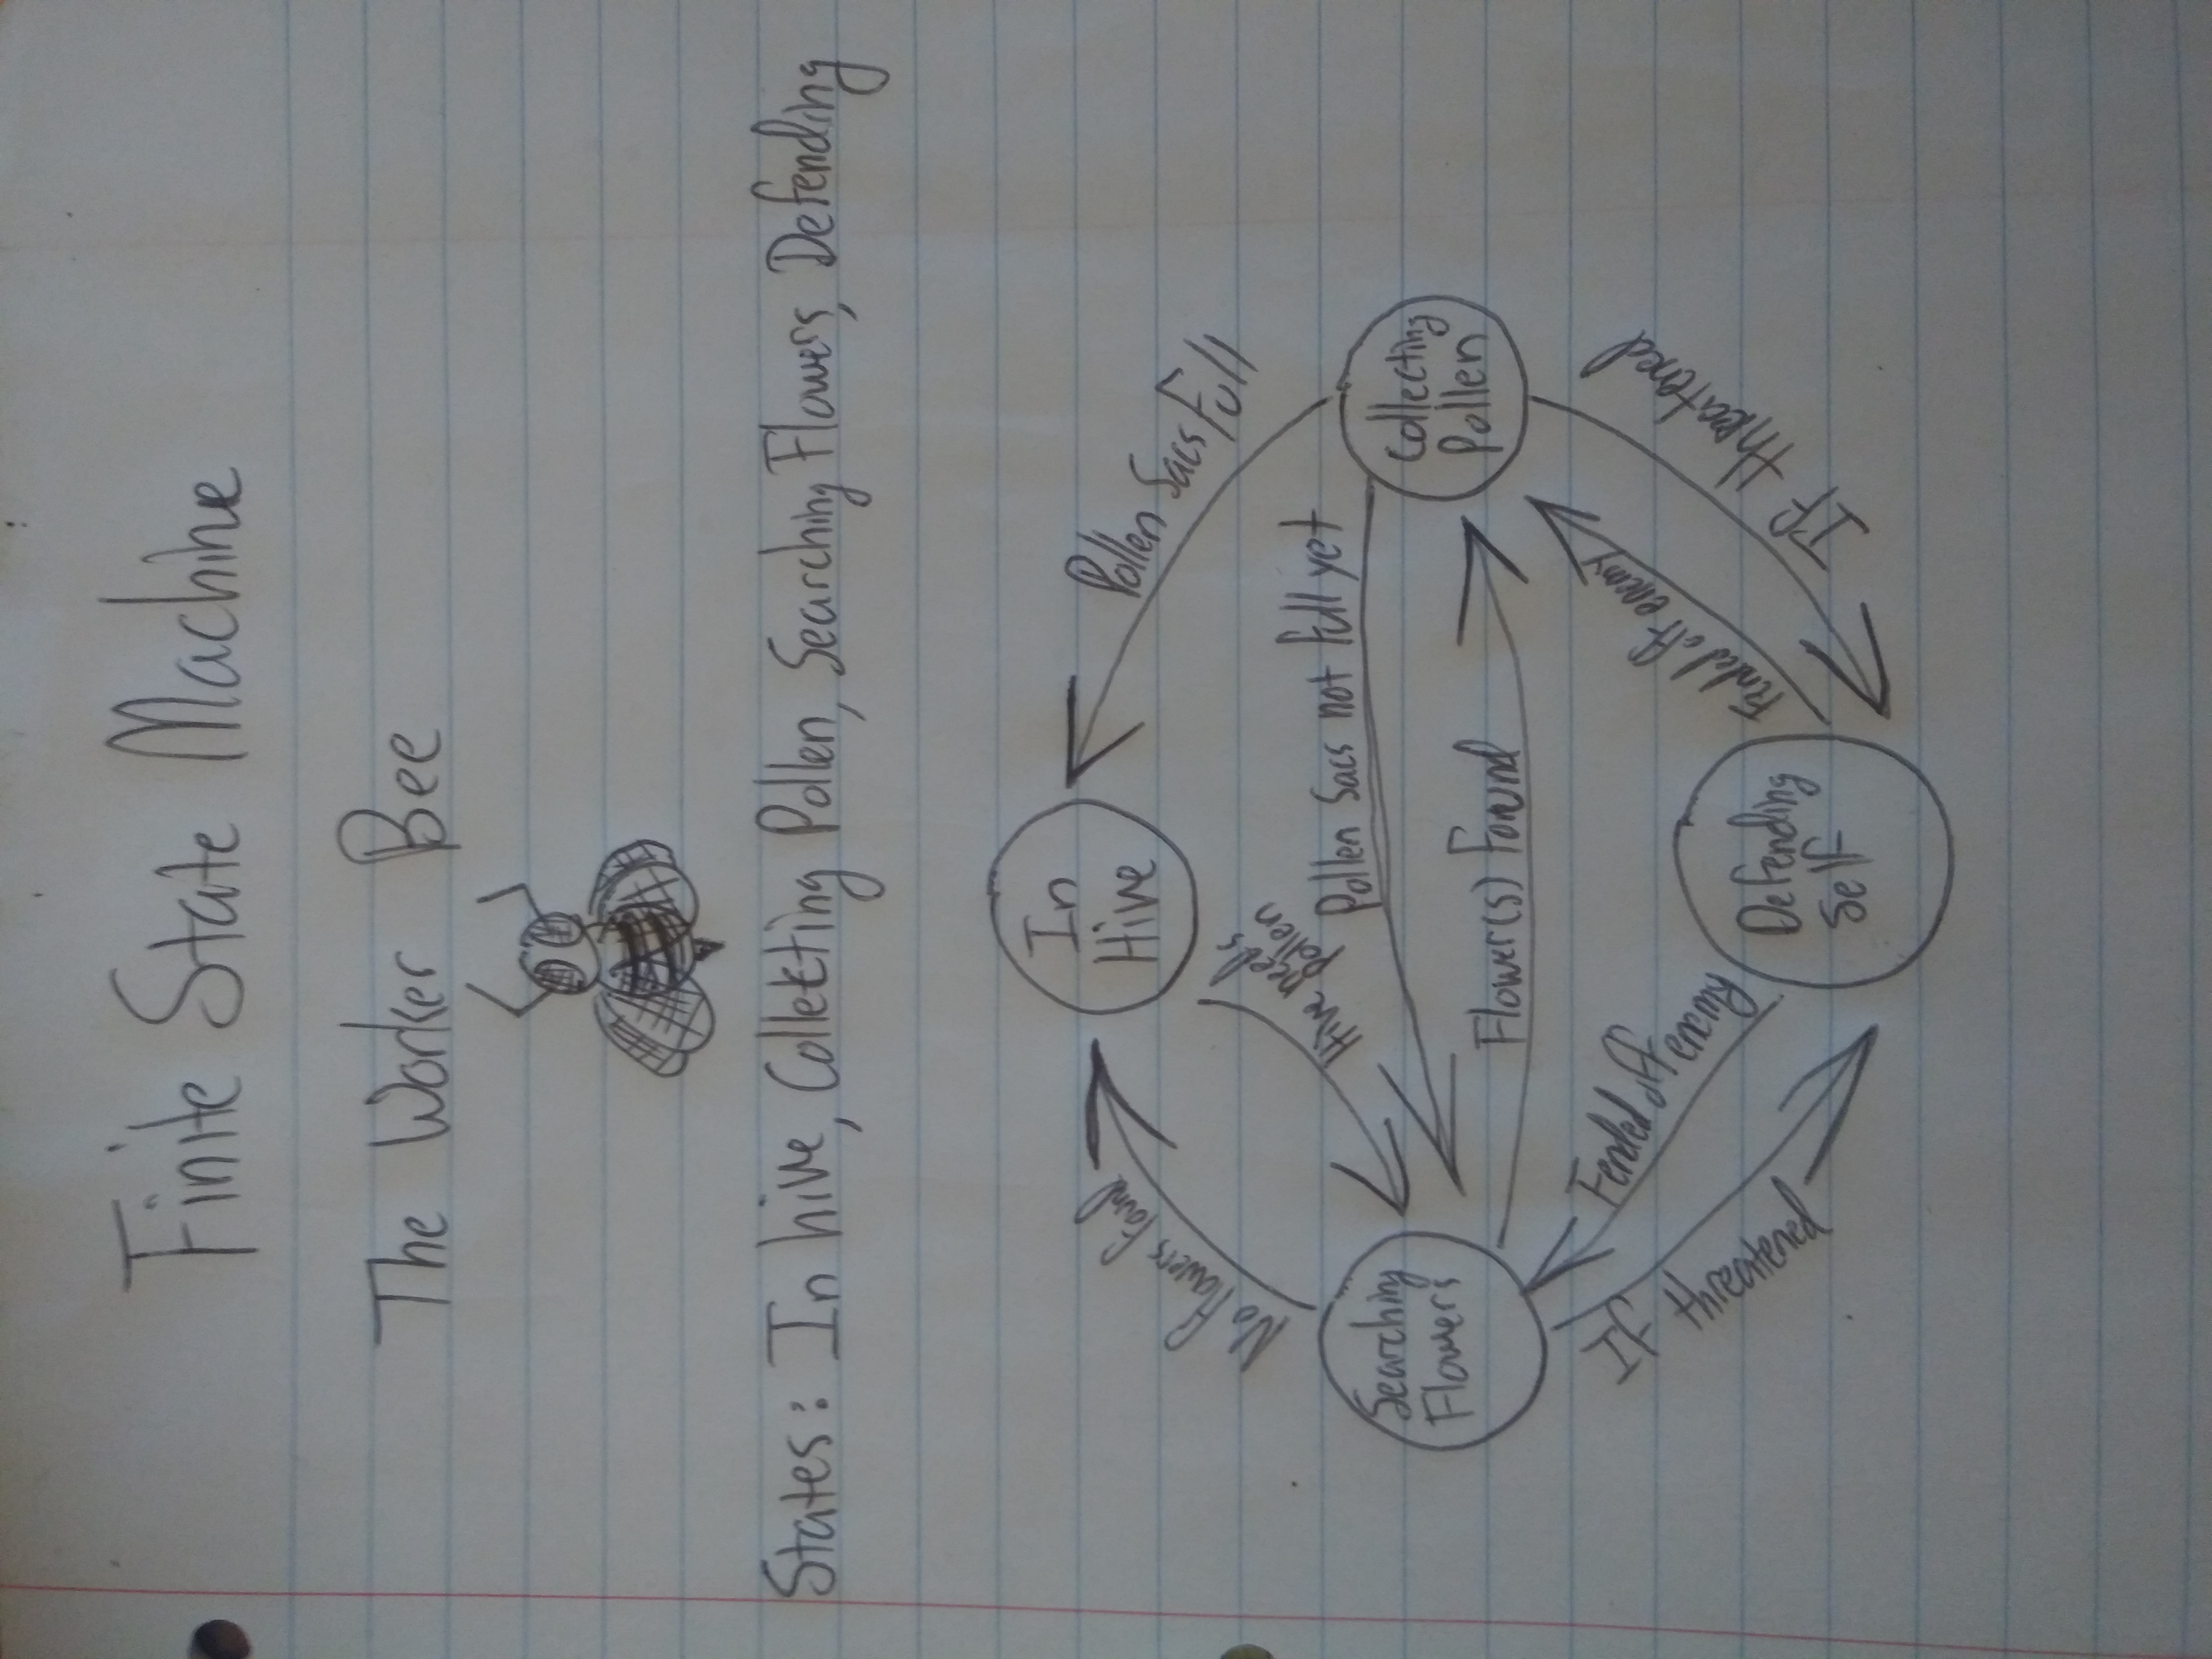 Finite State Machine
The Worker Bee
States: In hive, Collecting Pollen, Searching Flowers, Defending
In
Hive
No flowers found
Pollen Sacs Full
Hive needs
pollen
Pollen Sacs not full yet
Searching
Flowers
Collecting
Pollen
Flower(s) Found
Fended off enemy
Fended off enemy
If threatened
If threatened
Defending
Self